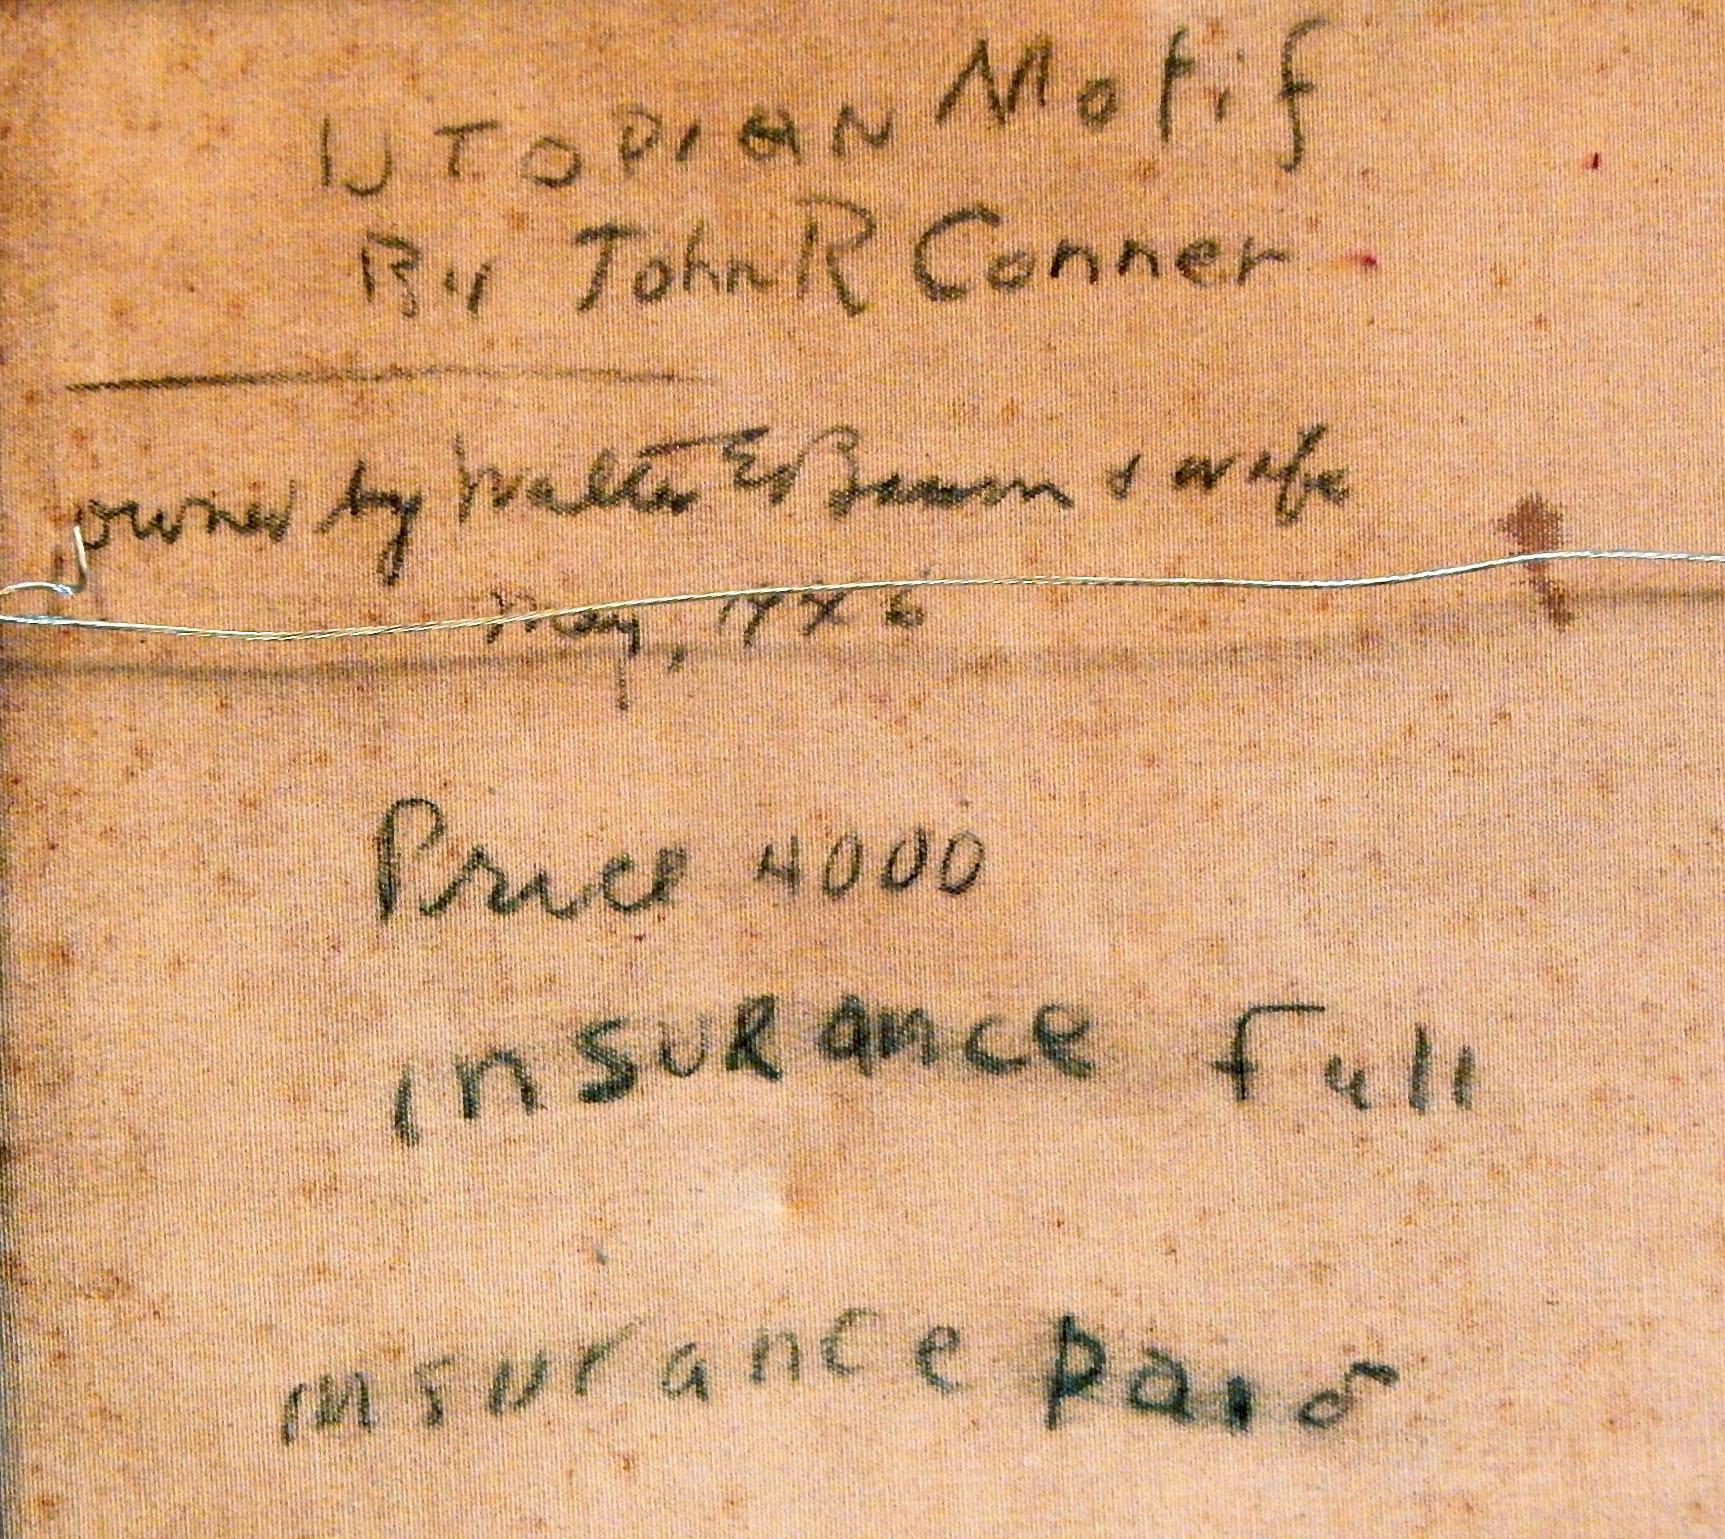 UTOPIAN Motif
By John R Conner
owned by Walter E Baum & wife
May, 1946
Price 4000
insurance Full
insurance paid